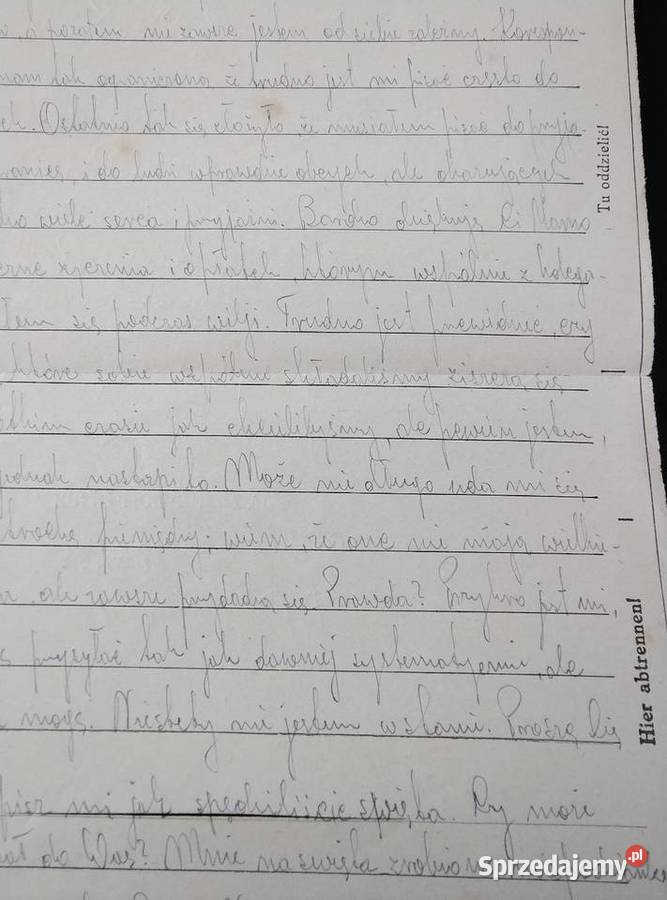 a poza tem nie zawsze jestem od siebie zależny. Korespon-
mam tak ograniczoną że trudno jest mi pisać często do
Ostatnio tak się złożyło, że musiałem pisać do przyja-
i do ludzi wprawdzie obcych, ale okazujących
wiele serca i przyjaźni. Bardzo dziękuję Ci Mamo
życzenia i opłatek, którym wspólnie z kolega-
się podczas wilji. Trudno jest przewidzieć, czy
które sobie wspólnie składaliśmy ziszczą się
czasie jak chcielibyśmy, ale pewien jestem,
jednak nastąpi to. Może nie długo uda mi się
trochę pieniędzy; wiem, że one nie mają wielkie-
ale zawsze przydadzą się. Prawda? Przykro jest mi,
przysyłać tak jak dawniej systematycznie, ale
mogę. Niestety nie jestem w stanie. Proszę Cię
mi jak spędziliście święta. Czy może
do Was? Mnie na święta
Tu oddzielić!
Hier abtrennen!
Sprzedajemy.pl